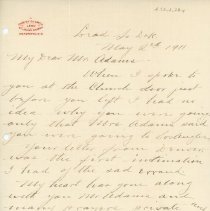 Lead So Dak.
May 2th 1911
My Dear Mr Adams.
When I spoke to
you at the Church door just
before you left I had no
idea why you were going
only that Mrs Adams said
you were going to
Your letter from Denver
was the first intimation
I had of the sad errand.
My heart has gone along
with you Mr Adams and
many prayers private and